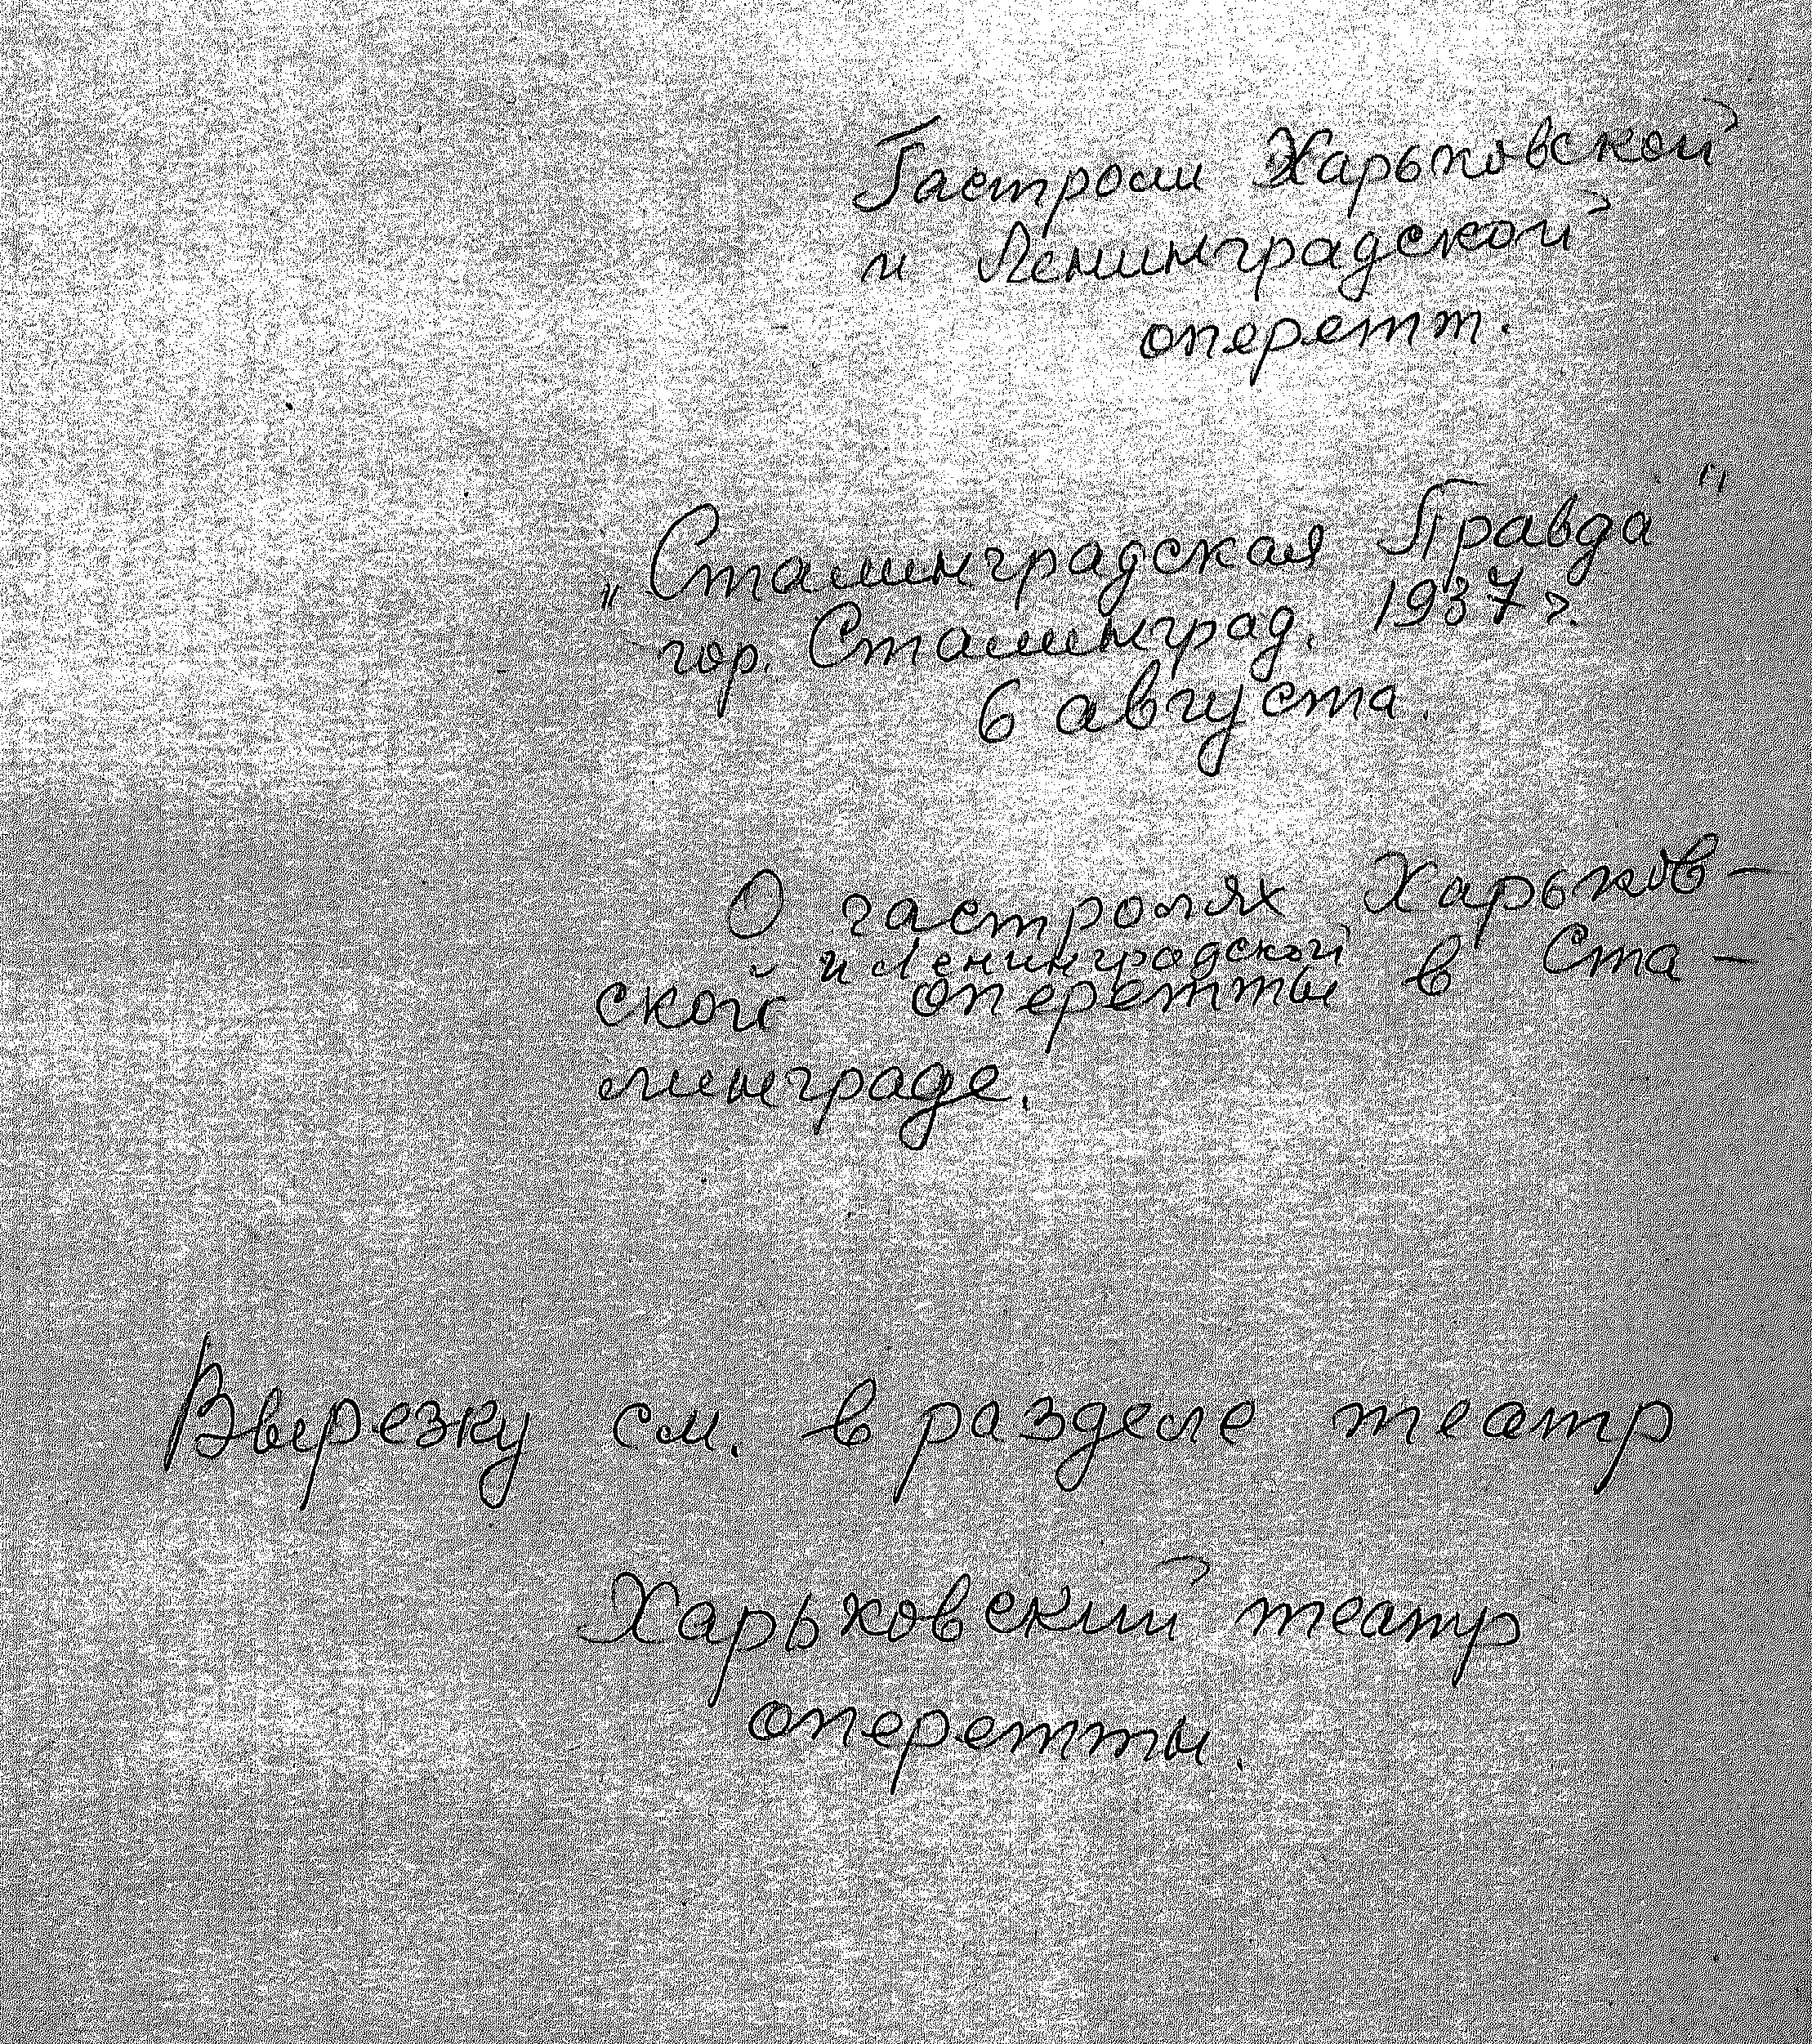 Гастроли Харьковской
и Ленинградской
оперетт.
"Сталинградская Правда"
гор. Сталинград. 1937 г.
6 августа.
О гастролях Харьков-
и Ленинградской
ской оперетты в Ста-
линграде.
Вырезку см. в разделе театр
Харьковский театр
оперетты.